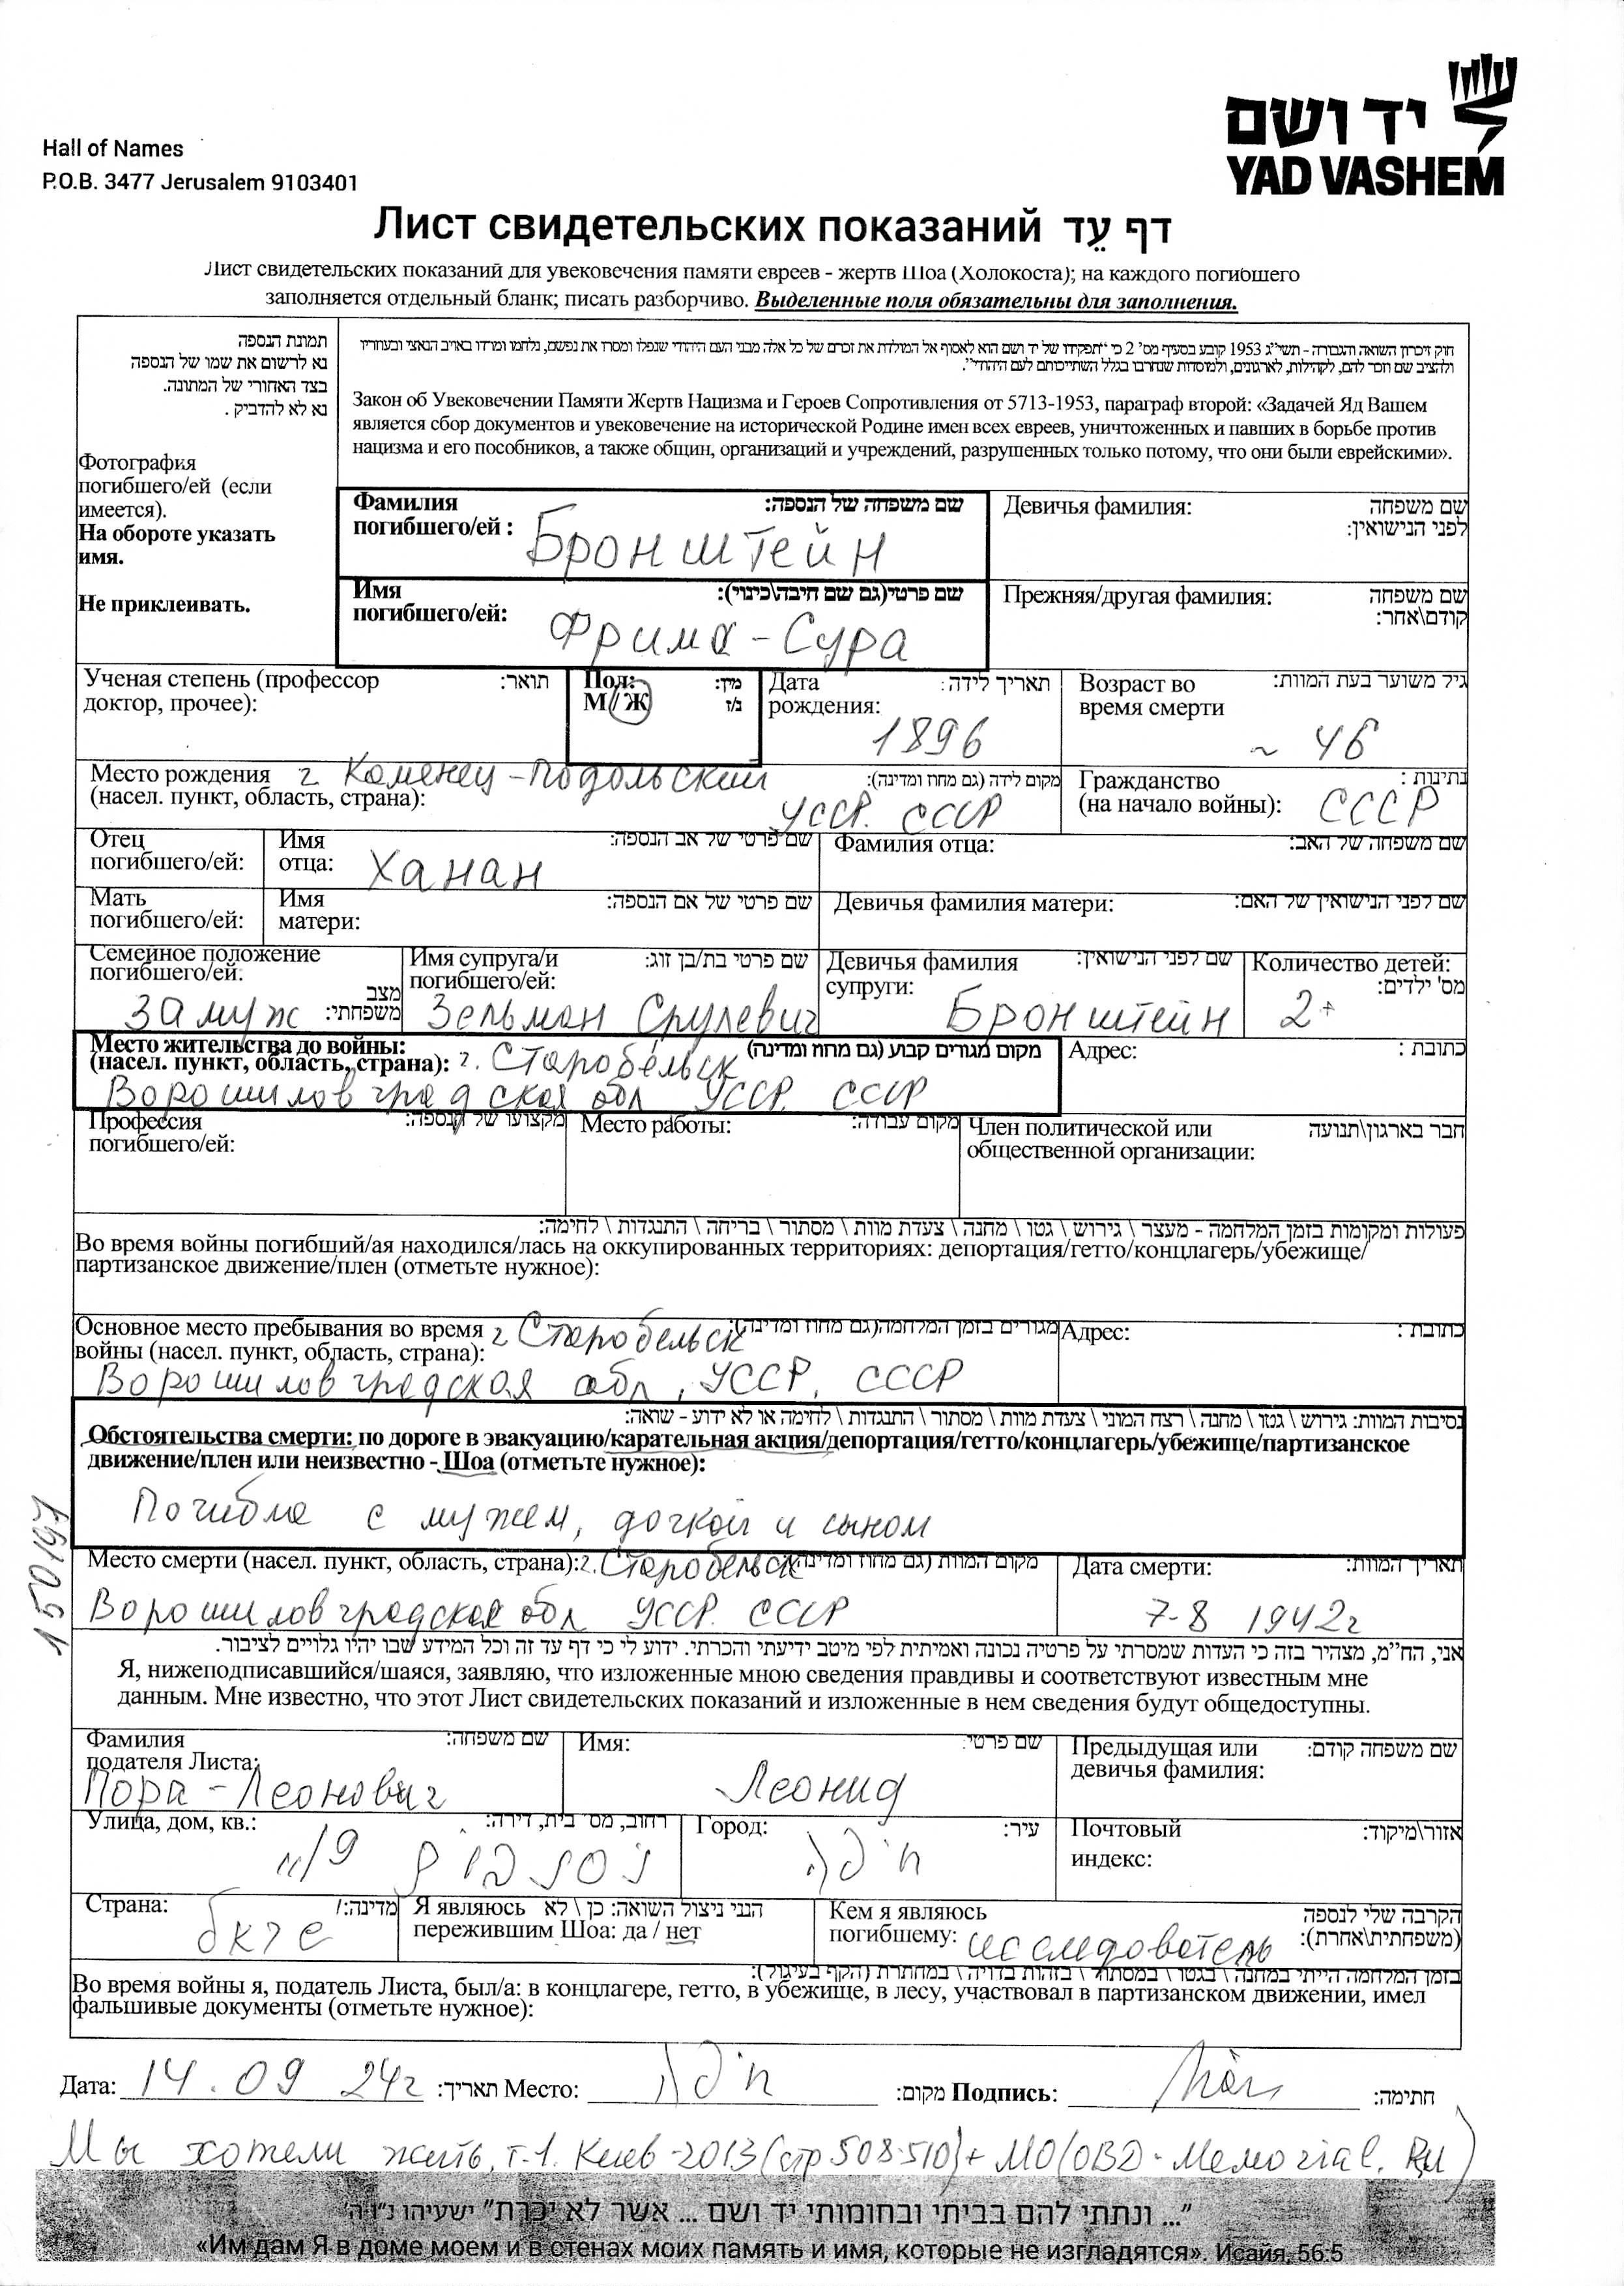 יד ושם
YAD VASHEM
Hall of Names
P.O.B. 3477 Jerusalem 9103401
Лист свидетельских показаний דף עֵד
Лист свидетельских показаний для увековечения памяти евреев - жертв Шоа (Холокоста); на каждого погибшего
заполняется отдельный бланк; писать разборчиво. Выделенные поля обязательны для заполнения.
תמונת הנספה
נא לרשום את שמו של הנספה
בצד האחורי של התמונה.
נא לא להדביק .
Фотография
погибшего/ей (если
имеется).
На обороте указать
имя.
Не приклеивать.
חוק זיכרון השואה והגבורה - תשי"ג 1953 קובע בסעיף מס' 2 כי "תפקידו של יד ושם הוא לאסוף אל המולדת את זכרם של כל אלה מבני העם היהודי שנפלו ומסרו את נפשם, נלחמו ומרדו באויב הנאצי ובעוזריו
ולהציב שם וזכר להם, לקהילות, לארגונים, ולמוסדות שנחרבו בגלל השתייכותם לעם היהודי".
Закон об Увековечении Памяти Жертв Нацизма и Героев Сопротивления от 5713-1953, параграф второй: «Задачей Яд Вашем
является сбор документов и увековечение на исторической Родине имен всех евреев, уничтоженных и павших в борьбе против
нацизма и его пособников, а также общин, организаций и учреждений, разрушенных только потому, что они были еврейскими».
Фамилия שם משפחה של הנספה:
погибшего/ей : Бронштейн
Девичья фамилия: שם משפחה
לפני הנישואין:
Имя שם פרטי(גם שם חיבה\כינוי):
погибшего/ей: Фрима-Сура
Прежняя/другая фамилия: שם משפחה
קודם\אחר:
Ученая степень (профессор תואר:
доктор, прочее):
Пол: מין:
М / Ж ז/נ
Дата תאריך לידה:
рождения: 1896
Возраст во גיל משוער בעת המוות:
время смерти ~ 46
Место рождения г Каменец-Подольский מקום לידה (גם מחוז ומדינה):
(насел. пункт, область, страна): УССР. СССР
Гражданство נתינות :
(на начало войны): СССР
Отец
погибшего/ей:
Имя שם פרטי של אב הנספה:
отца: Ханан
Фамилия отца: שם משפחה של האב:
Мать
погибшего/ей:
Имя שם פרטי של אם הנספה:
матери:
Девичья фамилия матери: שם לפני הנישואין של האם:
Семейное положение
погибшего/ей: מצב
замуж משפחתי:
Имя супруга/и שם פרטי בת/בן זוג:
погибшего/ей:
Зельман Срулевич
Девичья фамилия שם לפני הנישואין:
супруги: Бронштейн
Количество детей:
מס' ילדים:
2+
Место жительства до войны: מקום מגורים קבוע (גם מחוז ומדינה)
(насел. пункт, область, страна): г. Старобельск
Ворошиловградская обл УССР. СССР
Адрес: כתובת :
Профессия מקצועו של הנספה:
погибшего/ей:
Место работы: מקום עבודה:
Член политической или חבר בארגון\תנועה
общественной организации:
פעולות ומקומות בזמן המלחמה - מעצר \ גירוש \ גטו \ מחנה \ צעדת מוות \ מסתור \ בריחה \ התנגדות \ לחימה:
Во время войны погибший/ая находился/лась на оккупированных территориях: депортация/гетто/концлагерь/убежище/
партизанское движение/плен (отметьте нужное):
Основное место пребывания во время г Старобельск מגורים בזמן המלחמה(גם מחוז ומדינה):
войны (насел. пункт, область, страна):
Ворошиловградская обл, УССР, СССР
Адрес: כתובת :
נסיבות המוות: גירוש \ גטו \ מחנה \ רצח המוני \ צעדת מוות \ מסתור \ התנגדות \ לחימה או לא ידוע - שואה:
Обстоятельства смерти: по дороге в эвакуацию/карательная акция/депортация/гетто/концлагерь/убежище/партизанское
движение/плен или неизвестно - Шоа (отметьте нужное):
Погибла с мужем, дочкой и сыном
150197
Место смерти (насел. пункт, область, страна): г. Старобельск מקום המוות (גם מחוז ומדינה)
Ворошиловградская обл УССР. СССР
Дата смерти: תאריך המוות:
7-8 1942г
אני, הח"מ, מצהיר בזה כי העדות שמסרתי על פרטיה נכונה ואמיתית לפי מיטב ידיעתי והכרתי. ידוע לי כי דף עד זה וכל המידע שבו יהיו גלויים לציבור.
Я, нижеподписавшийся/шаяся, заявляю, что изложенные мною сведения правдивы и соответствуют известным мне
данным. Мне известно, что этот Лист свидетельских показаний и изложенные в нем сведения будут общедоступны.
Фамилия שם משפחה:
подателя Листа:
Пора-Леонович
Имя: שם פרטי:
Леонид
Предыдущая или שם משפחה קודם:
девичья фамилия:
Улица, дом, кв.: רחוב, מס' בית, דירה:
Город: עיר:
חיפה
Почтовый אזור\מיקוד:
индекс:
Страна: מדינה:
Я являюсь הנני ניצול השואה: כן \ לא
пережившим Шоа: да / нет
Кем я являюсь הקרבה שלי לנספה
погибшему: исследователь (משפחתית\אחרת):
בזמן המלחמה הייתי במחנה \ בגטו \ במסתור \ בזהות בדויה \ במחתרת (הקף בעיגול):
Во время войны я, податель Листа, был/а: в концлагере, гетто, в убежище, в лесу, участвовал в партизанском движении, имел
фальшивые документы (отметьте нужное):
Дата: 14.09 24г תאריך: Место: חיפה מקום: Подпись: חתימה:
Мы хотели жить, т-1. Киев-2013 (стр 508-510) + МО (OBD-Memorial.Ru)
"... ונתתי להם בביתי ובחומותי יד ושם ... אשר לא יכרת" ישעיהו נ"ו ה'
«Им дам Я в доме моем и в стенах моих память и имя, которые не изгладятся». Исайя, 56:5